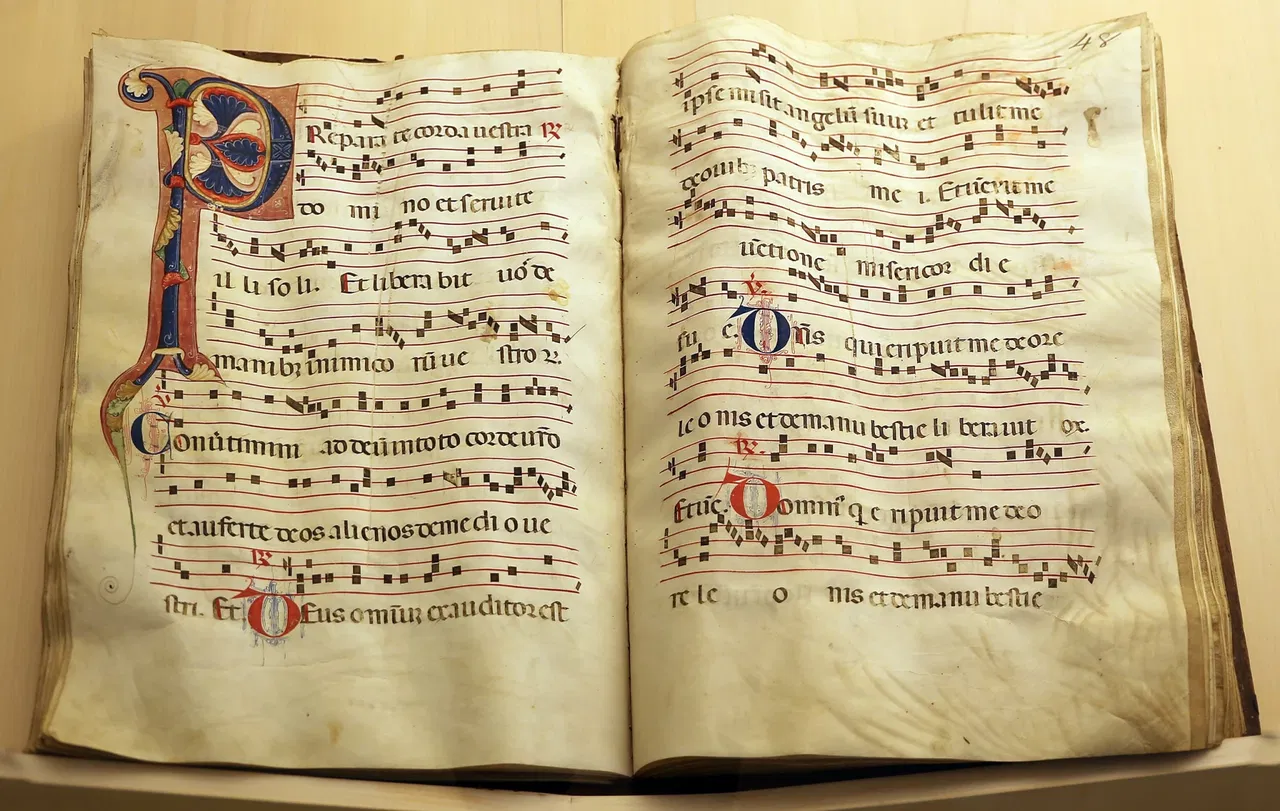 PReparate corda uestra ℟
do mi no et seruite
il li so li. Et libera bit uos de
manibꝫ inimico rū ue stro ꝝ.
℣
Conuertimini ad deū in toto corde ur̄o
et auferte deos alienos de me di o ue
℟
stri. Et DEus omniū exauditor est
48
ipse misit angelū suum et tulit me
de ouibꝫ patris me i. Et ūxit me
ūctione misericor di e
℣.
su e. Dn̄s qui eripuit me de ore
le o nis et de manu bestie li berauit
℟.
Et ūc. Domin' q e ripuit me de o
re le o nis et de manu bestie